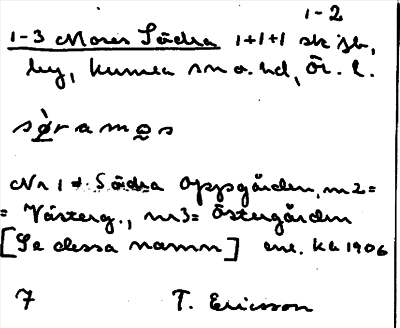 1-2
1-3 Moren Södra 1+1+1 sk jb,
by, Kumla sn o. hd, Ör. l.
sø̀ramo̰s
Nr 1 = Södra Oppgården, nr 2 =
= Västerg., nr 3 = Östergården
[Se dessa namn] enl. kk 1906
7 T. Ericsson